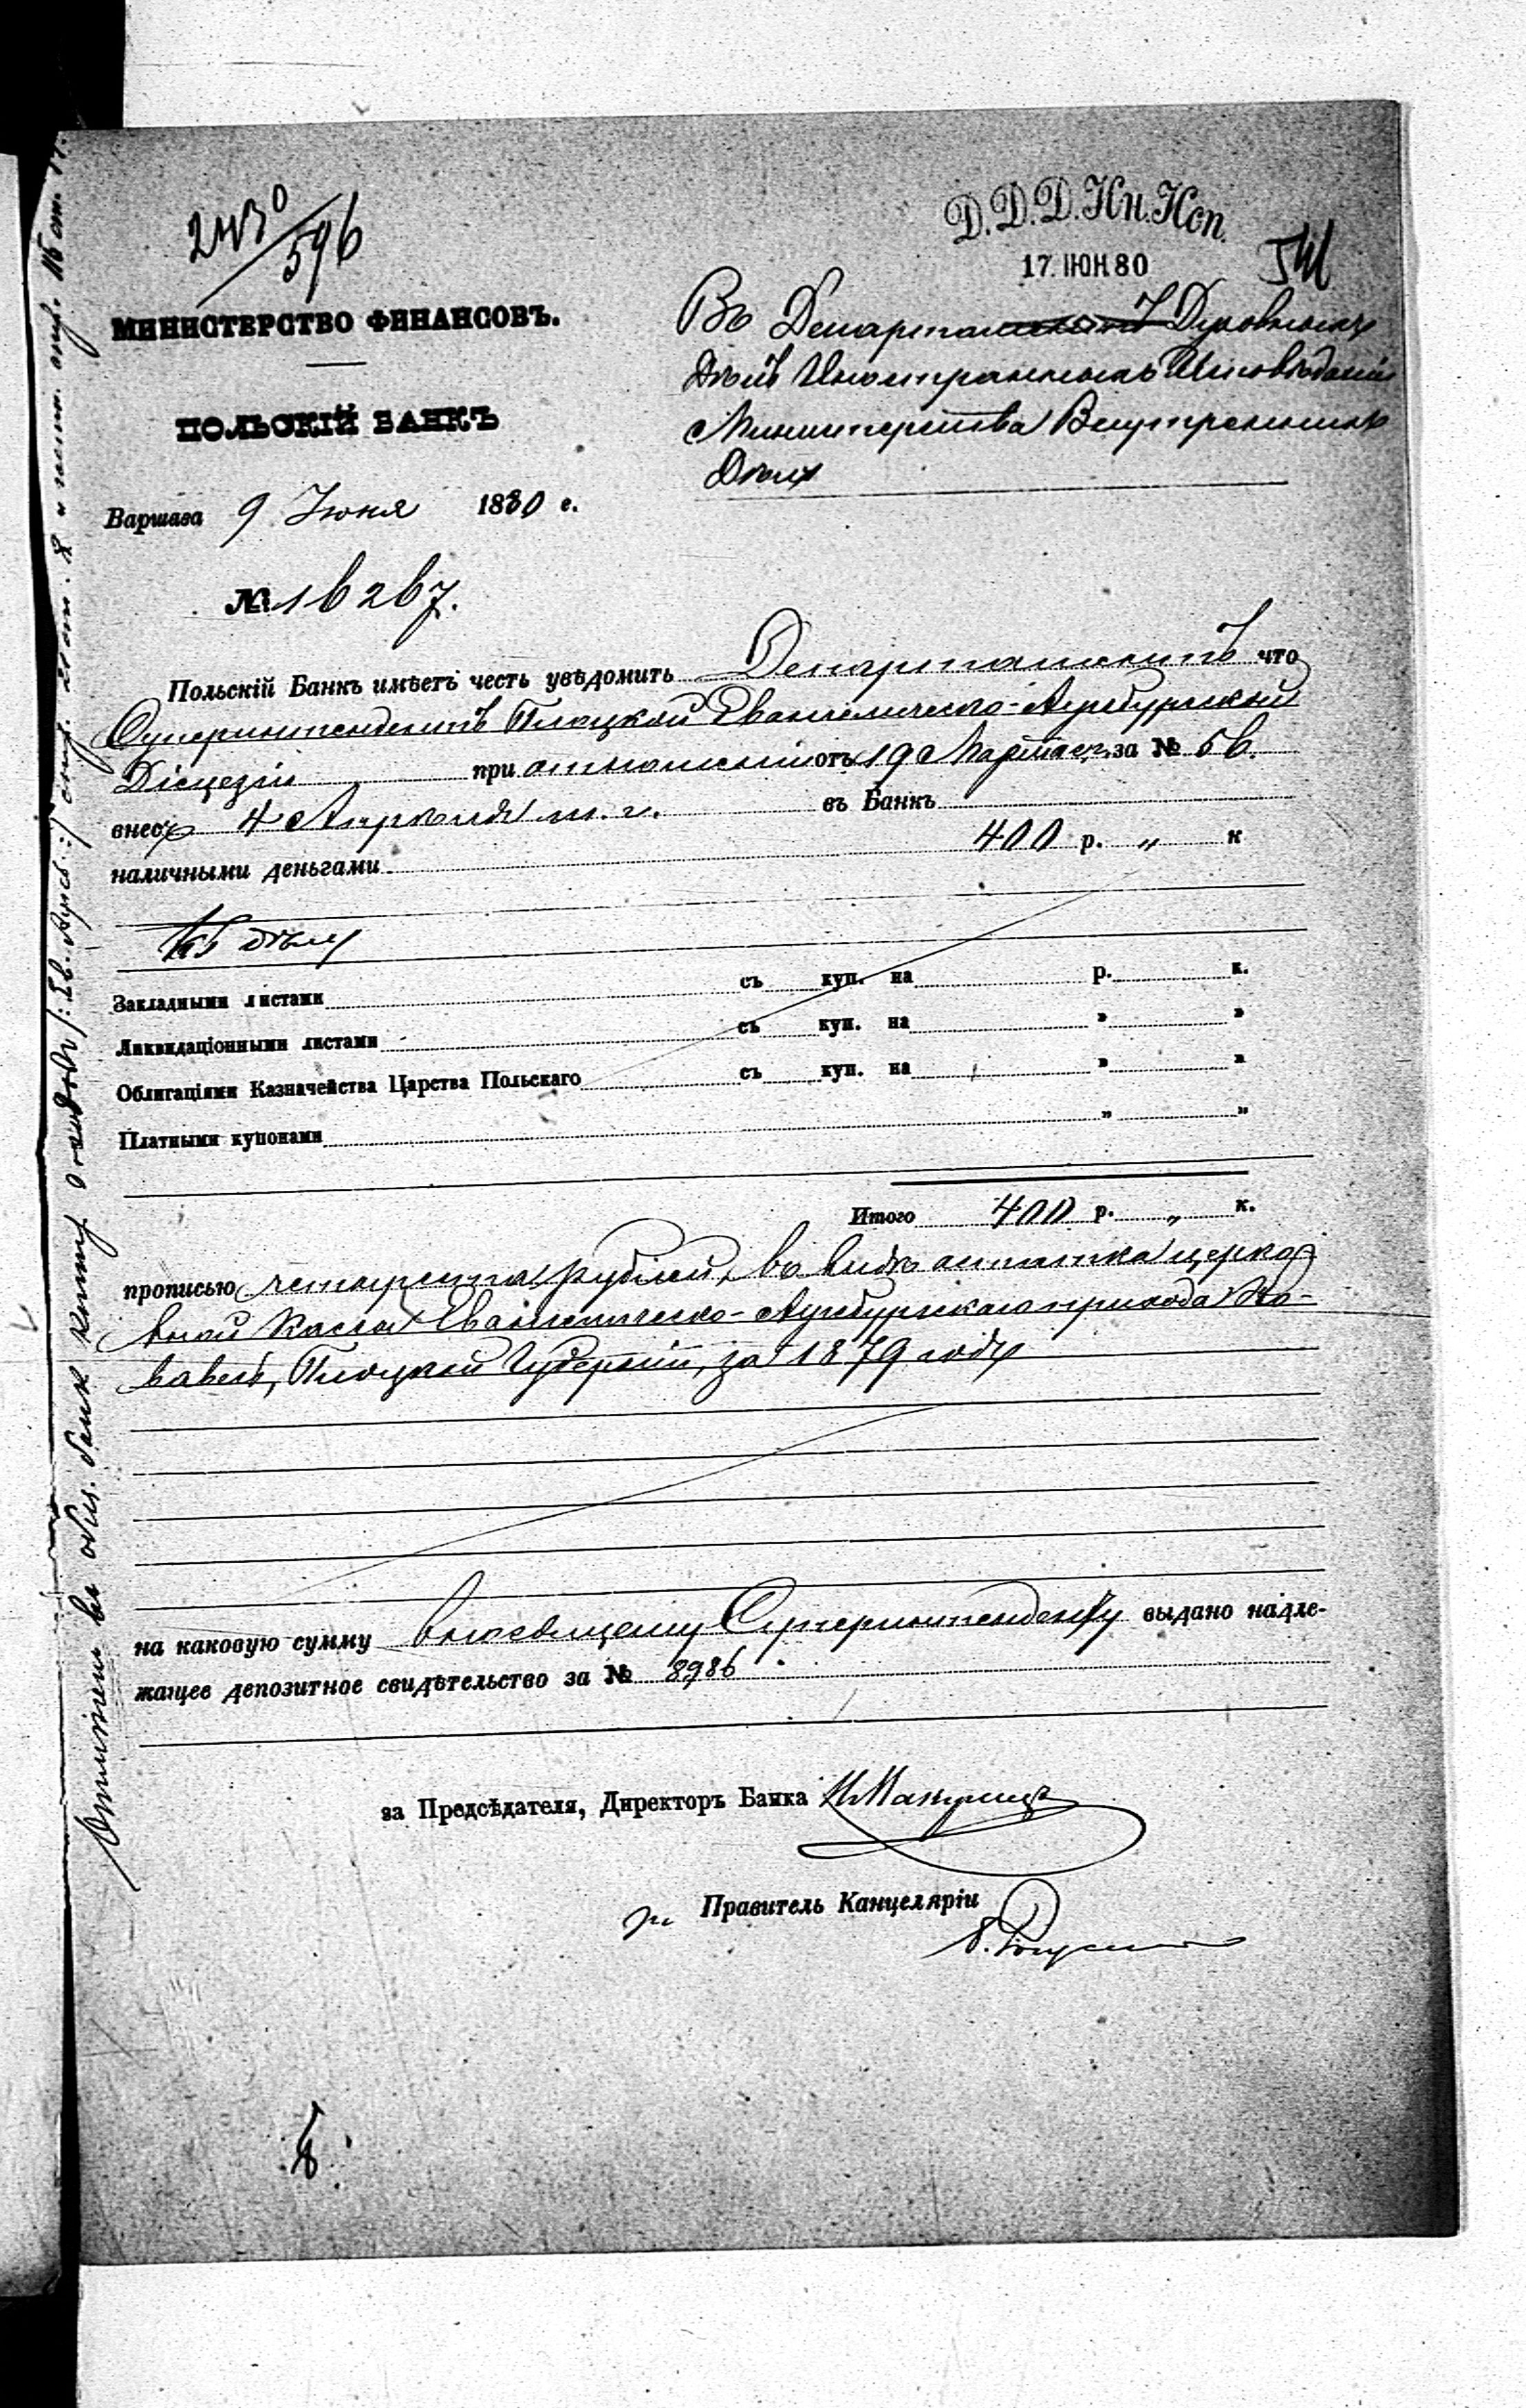 2430/596
Д.Д.Д.Ин.Исп.
17.ІЮН80
МИНИСТЕРСТВО ФИНАНСОВЪ.
ПОЛЬСКІЙ БАНКЪ
Въ Департаментъ Духовныхъ
Дѣлъ Иностранныхъ Исповѣданій
Министерства Внутреннихъ
Дѣлъ
Варшава 9 Іюня 1880 г.
№ 16267.
Польскій Банкъ имѣетъ честь увѣдомить Департаментъ что
Суперинтендентъ Плоцкой Евангелическо-Аугсбургской
Діецезіи при отношеніи отъ 19 Марта с.г. за № 56
внесъ 4 Апрѣля т. г. въ Банкъ
наличными деньгами 400 р. „ к
Къ дѣлу
Закладными листами съ куп. на р. к.
Ликвидаціонными листами съ куп. на » »
Облигаціями Казначейства Царства Польскаго съ куп. на » »
Платными купонами „ „
Итого 400 р. „ к.
прописью четыреста рублей, въ видѣ остатка церко-
вной кассы Евангелическо-Аугсбургскаго прихода
Плоцкой Губерніи, за 1879 годъ
на каковую сумму вносящему Суперинтенденту выдано надле-
жащее депозитное свидѣтельство за № 8986
за Предсѣдателя, Директоръ Банка
Правитель Канцеляріи